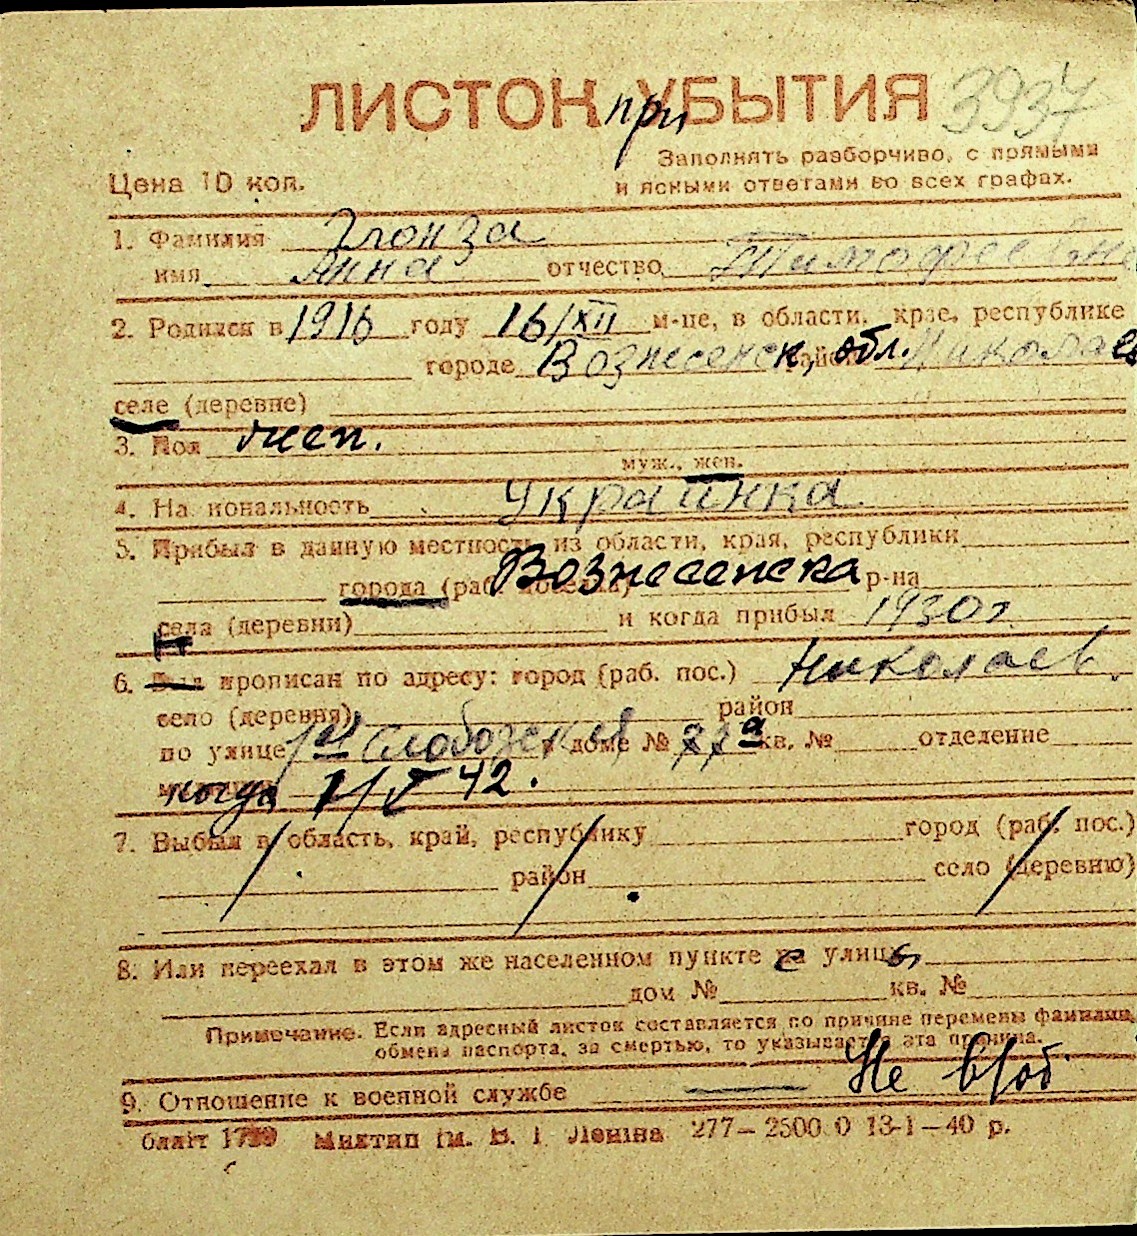 ЛИСТОК при УБЫТИЯ 3937
Заполнять разборчиво, с прямыми
Цена 10 коп. и ясными ответами во всех графах.
1. Фамилия
имя Анна отчество Тимофеевна
2. Родился в 1916 году 16/XII м-це, в области, крае, республике
городе Вознесенск, обл. Николаев
селе (деревне)
3. Пол жен.
муж., жен.
4. Национальность Украинка
5. Прибыл в данную местность из области, края, республики
города (раб. поселка) Вознесенска р-на
села (деревни) и когда прибыл 1930 г.
6. Был прописан по адресу: город (раб. пос.) Николаев
село (деревня) район
по улице 1ая Слободская доме № кв. № отделение
когда 1/V 42.
7. Выбыл в область, край, республику город (раб. пос.)
район село (деревню)
8. Или переехал в этом же населенном пункте с улицы
дом № кв. №
Примечание. Если адресный листок составляется по причине перемены фамилии,
обмена паспорта, за смертью, то указывается эта причина.
9. Отношение к военной службе — Не в/об.
277—2500 0 13-1—40 р.